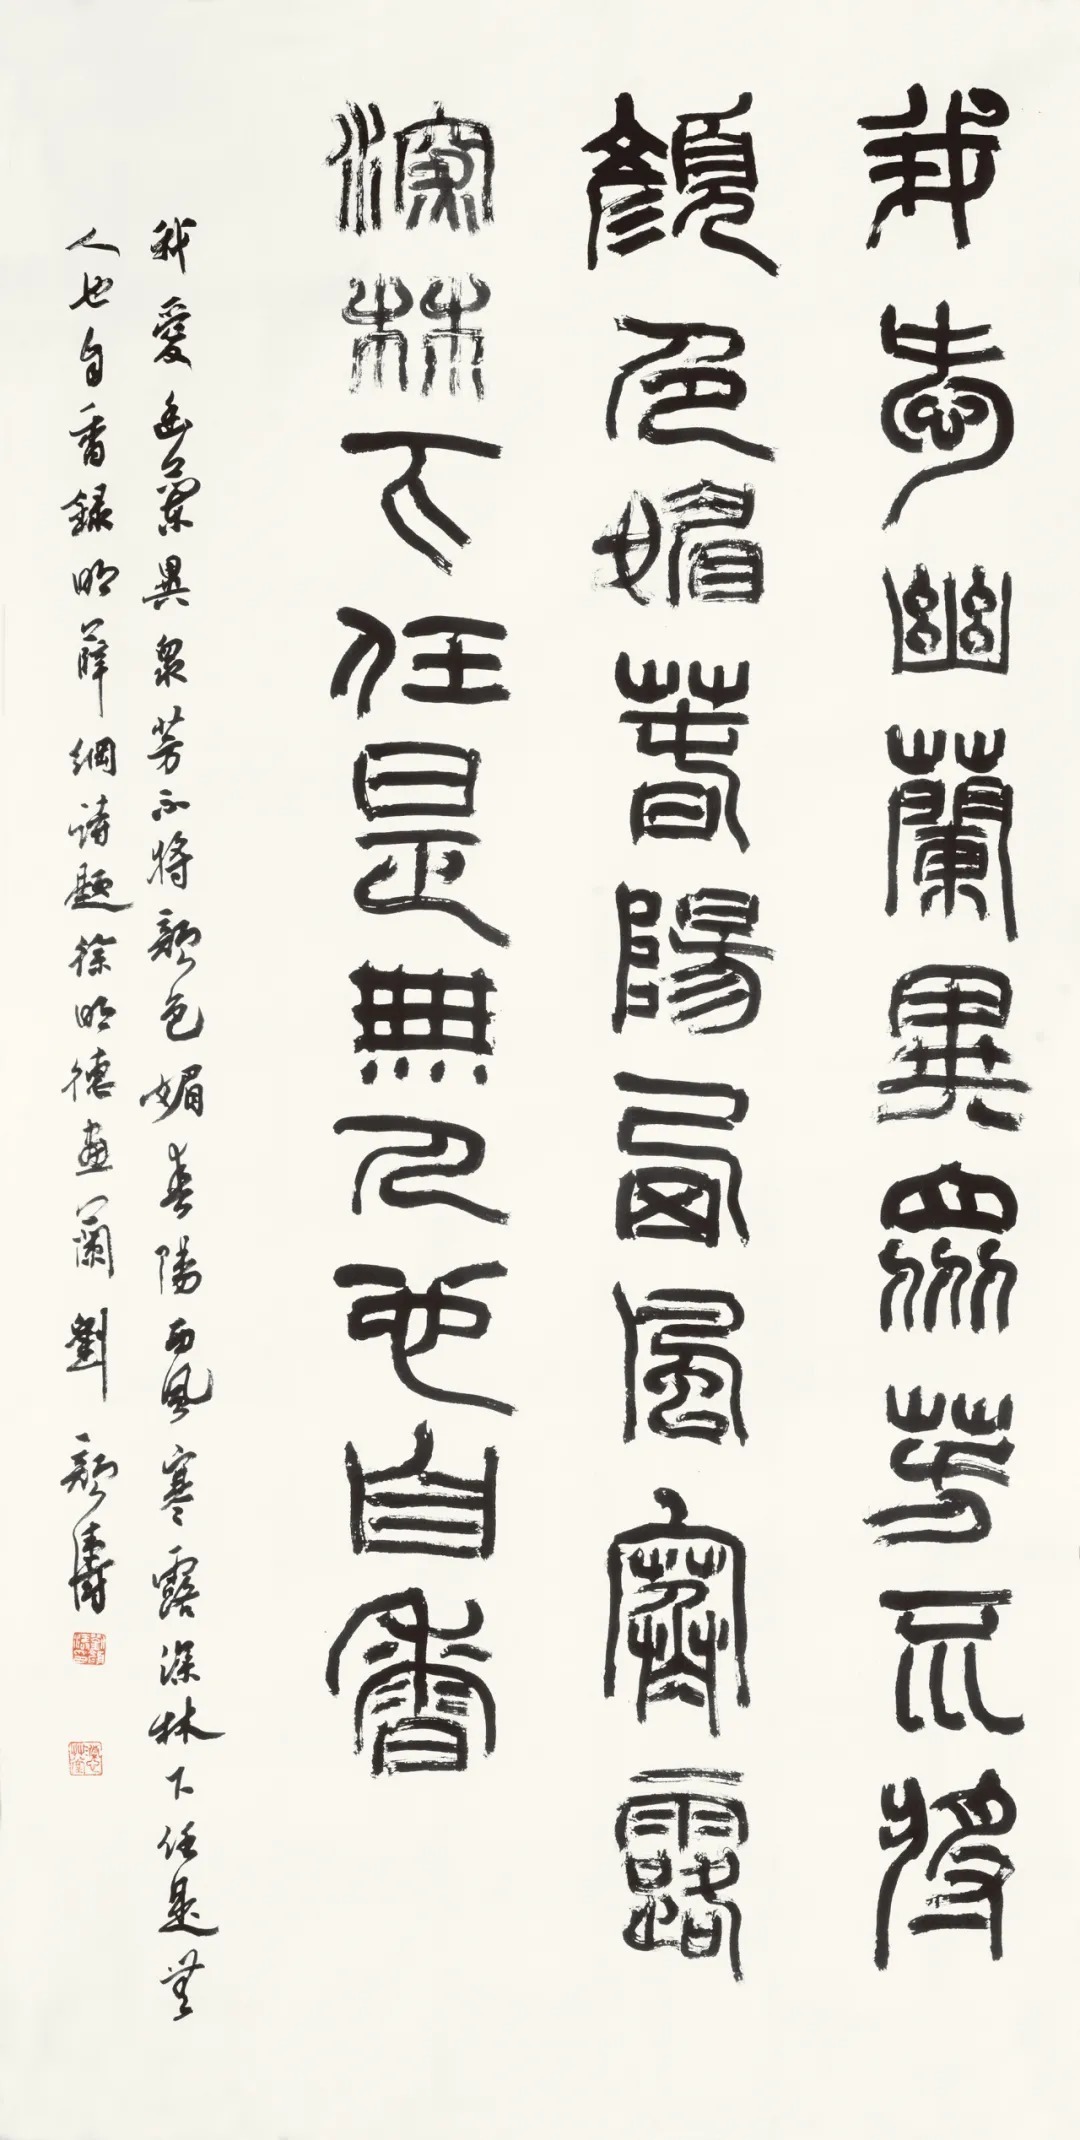 我愛幽蘭異眾芳不將
顏色媚春陽西風寒露
深林下任是無人也自香
我愛幽蘭異眾芳不將顏色媚春陽西風寒露深林下任是無
人也自香錄明薛綱詩題徐明德畫蘭劉顏濤